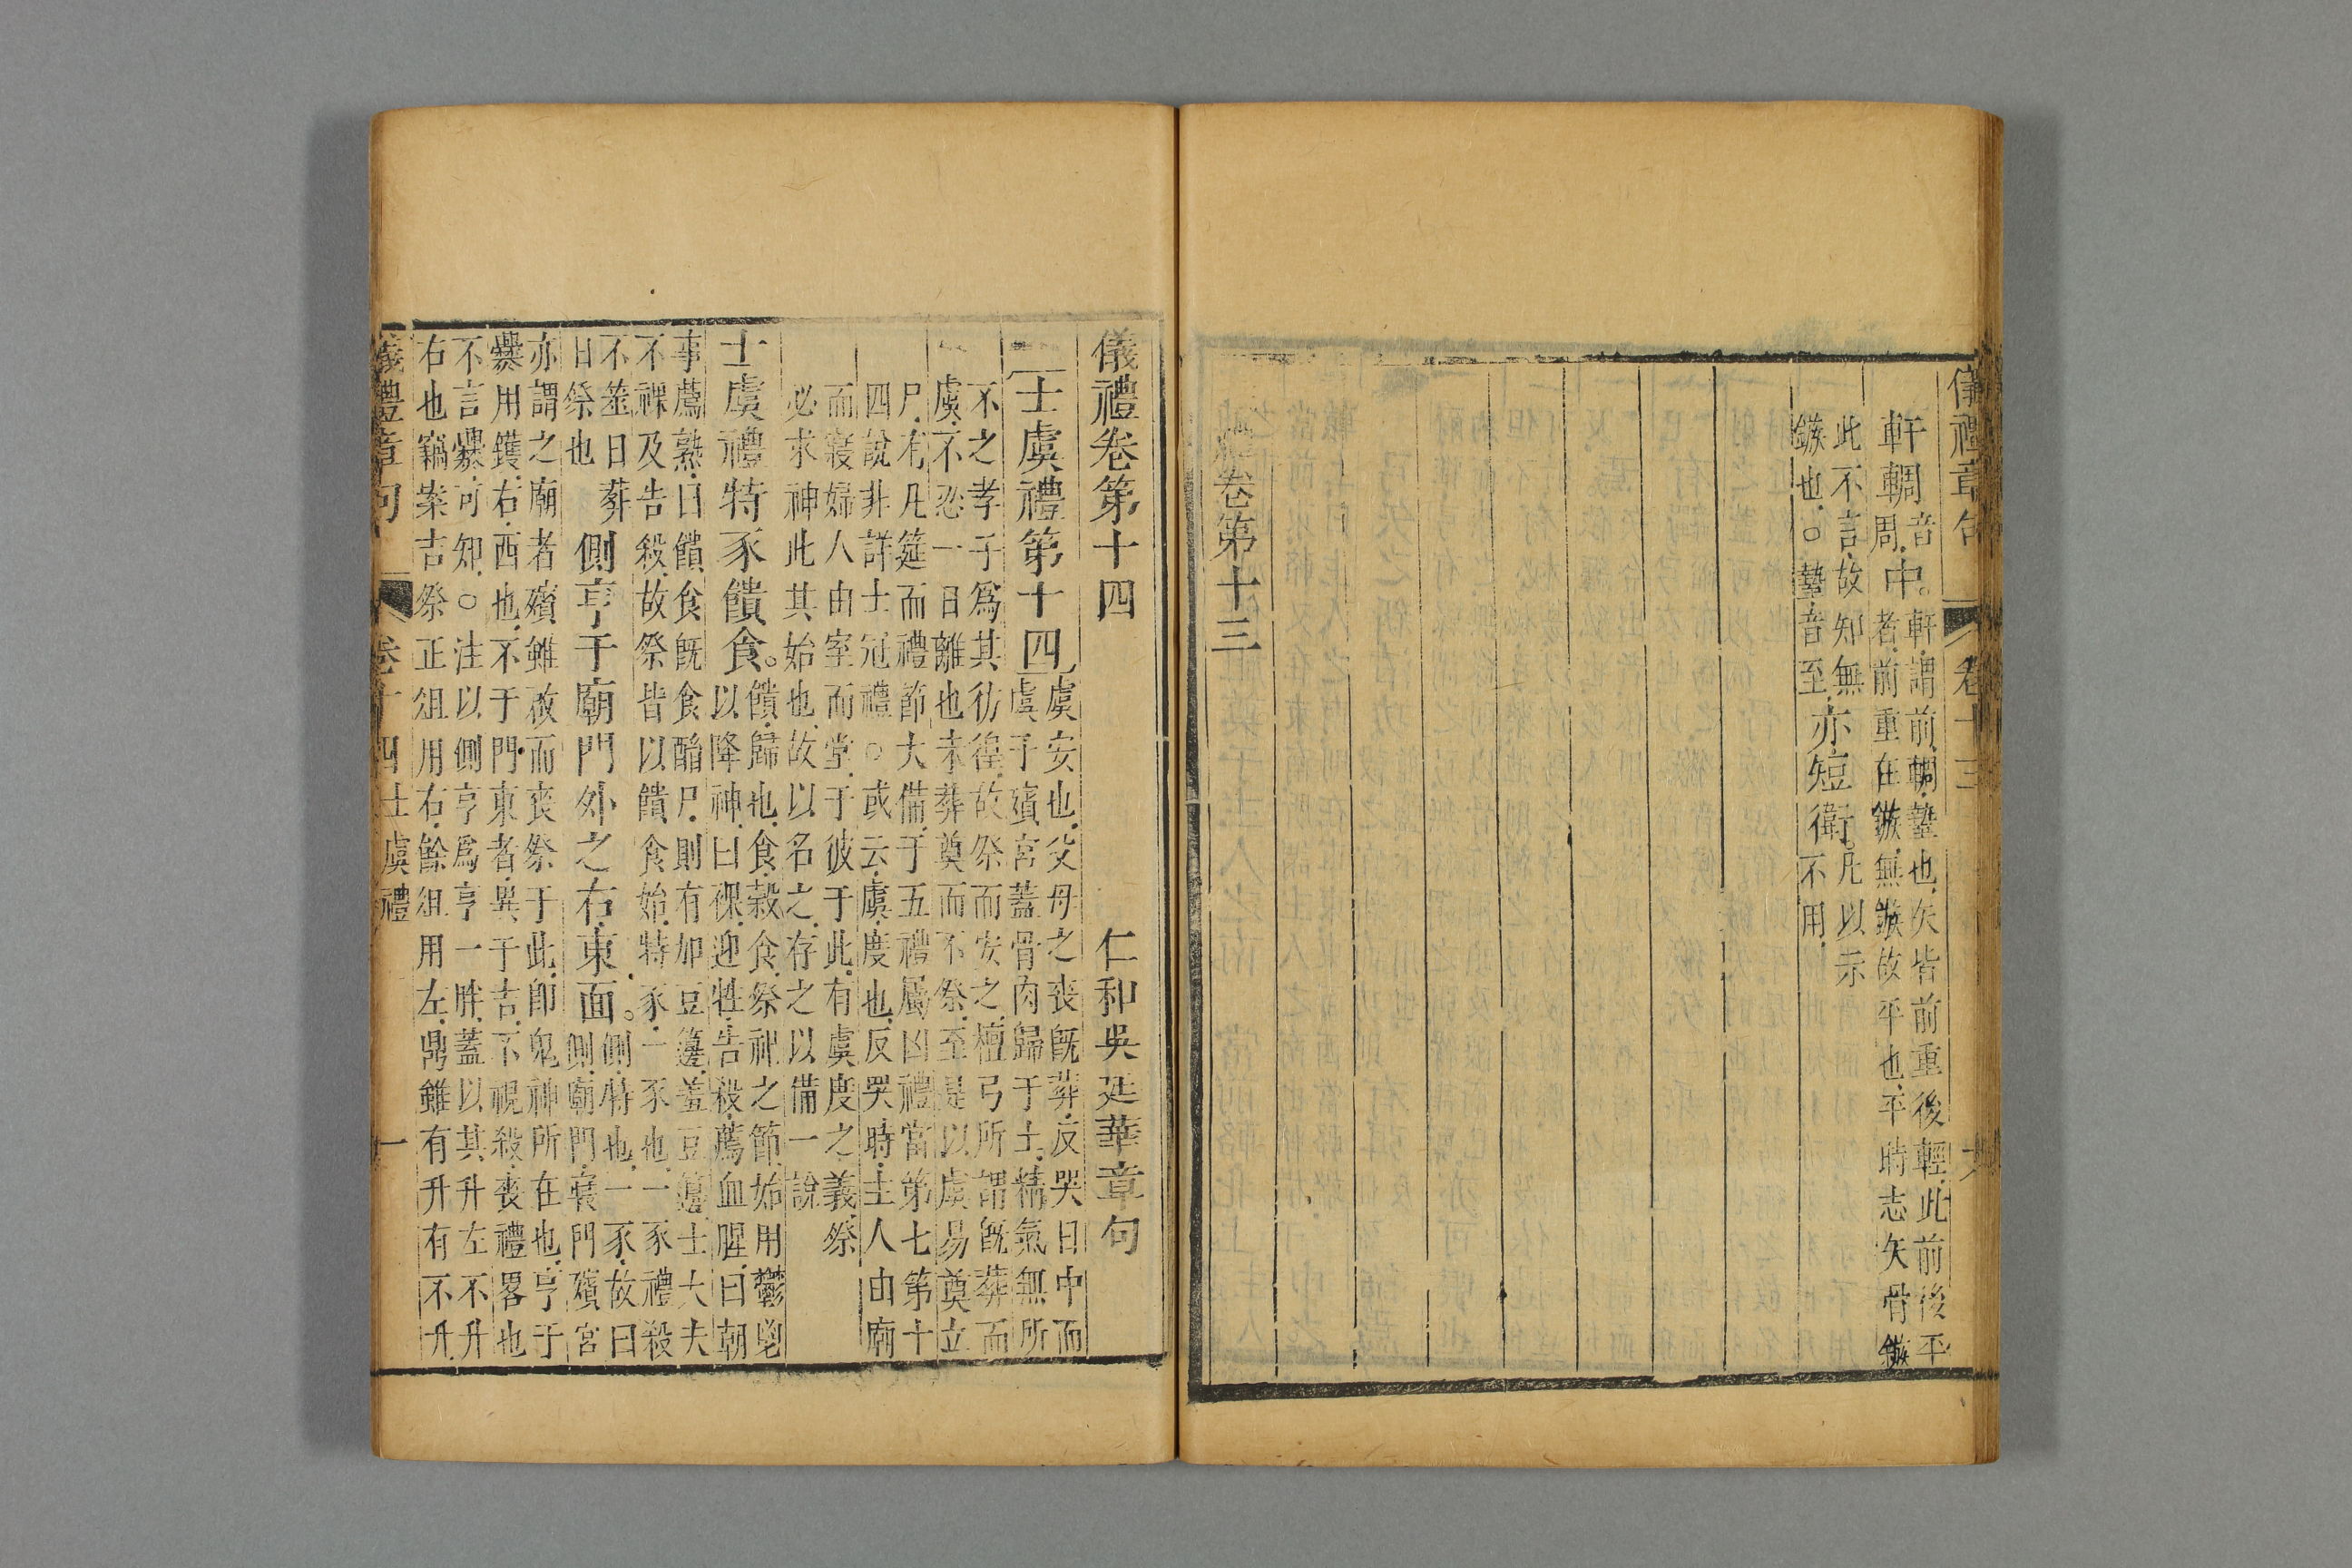 儀禮章句
卷十三
軒輖音周中。軒謂前輖墊也矢皆前重後輕此前後平
者前重在鏃無鏃故平也平時志矢骨鏃
此不言故知無
鏃也○墊音至亦短衛。凡以示
不用
禮卷第十三
儀禮卷第十四
仁和吳廷華章句
士虞禮第十四 虞安也父母之喪既葬反哭日中而
虞于殯宮蓋骨肉歸于土精氣無所
不之孝子爲其彷徨故祭而安之檀弓所謂既葬而
虞不忍一日離也未葬奠而不祭至是以虞易奠立
尸有几筵而禮節大備于五禮屬凶禮當第七第十
四說非詳士冠禮○或云虞度也反哭時主人由廟
而寢婦人由室而堂于彼于此有虞度之義祭
必求神此其始也故以名之存之以備一說
士虞禮特豕饋食。饋歸也食穀食祭祀之節始用鬱鬯
以降神曰祼迎牲告殺薦血腥曰朝
事薦熟曰饋食既食酳尸則有加豆籩羞豆籩士大夫
不祼及告殺故祭皆以饋食始特豕一豕也一豕禮殺
不筮日葬
日祭也側亨于廟門外之右東面。側特也一豕故曰
側廟門寢門殯宮
亦謂之廟者殯雖啟而喪祭于此卽鬼神所在也亨于
爨用鑊右西也不于門東者異于吉下視殺喪禮畧也
不言爨可知○注以側亨爲亨一胖蓋以其升左不升
右也竊案吉祭正俎用右餘俎用左鼎雖有升有不升
儀禮章句
卷十四士虞禮
一